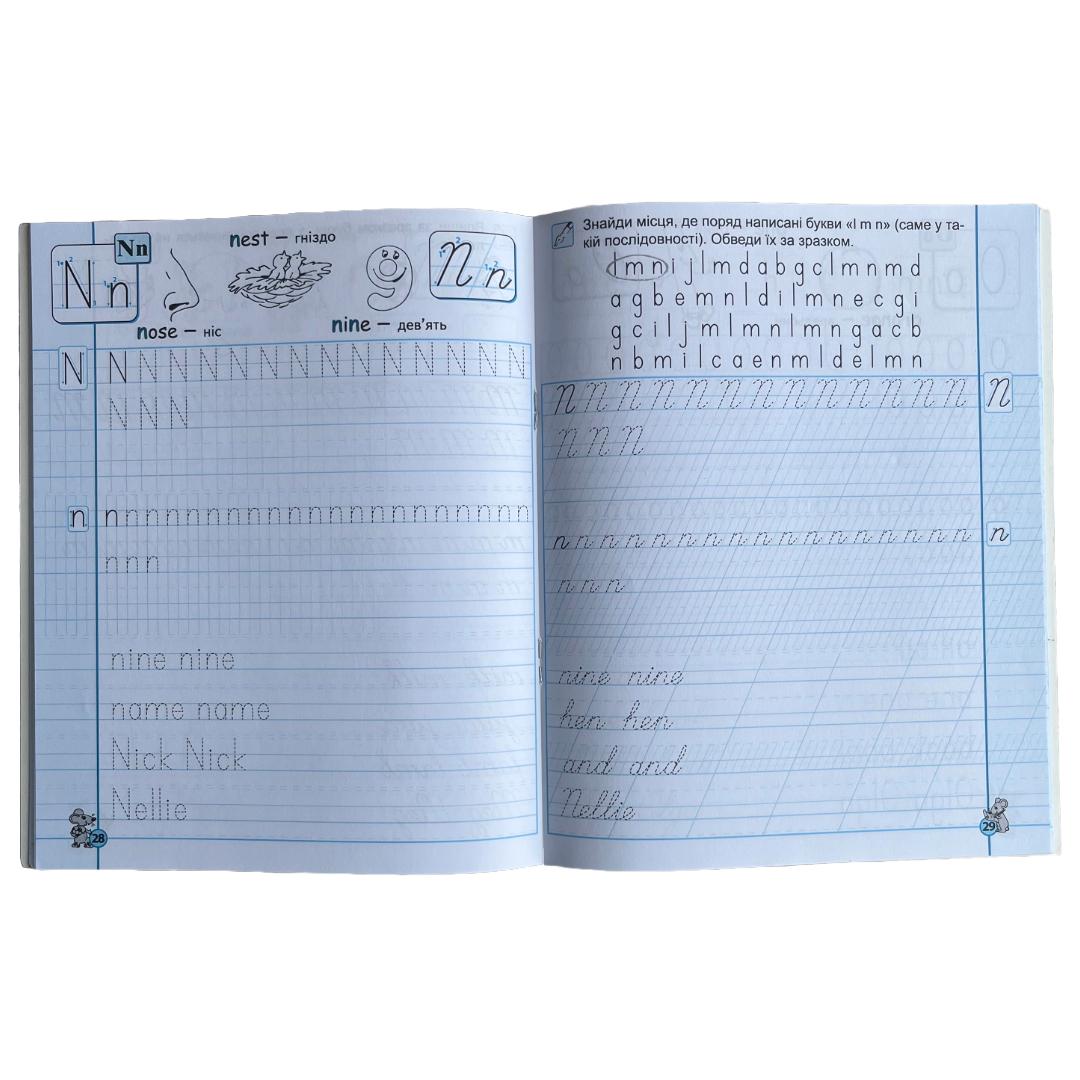 Nn
N n
nest – гніздо
N n
nose – ніс
nine – дев'ять
N N N N N N N N N N N N N N N
N N N
n n n n n n n n n n n n n n n n n n n n n n n
n n n
nine nine
name name
Nick Nick
Nellie
28
Знайди місця, де поряд написані букви «l m n» (саме у та-
кій послідовності). Обведи їх за зразком.
l m n i j l m d a b g c l m n m d
a g b e m n l d i l m n e c g i
g c i l j m l m n l m n g a c b
n b m i l c a e n m l d e l m n
N N N N N N N N N N N N N N
N N N
n n n n n n n n n n n n n n n n n n
n n n
nine nine
hen hen
and and
Nellie
29